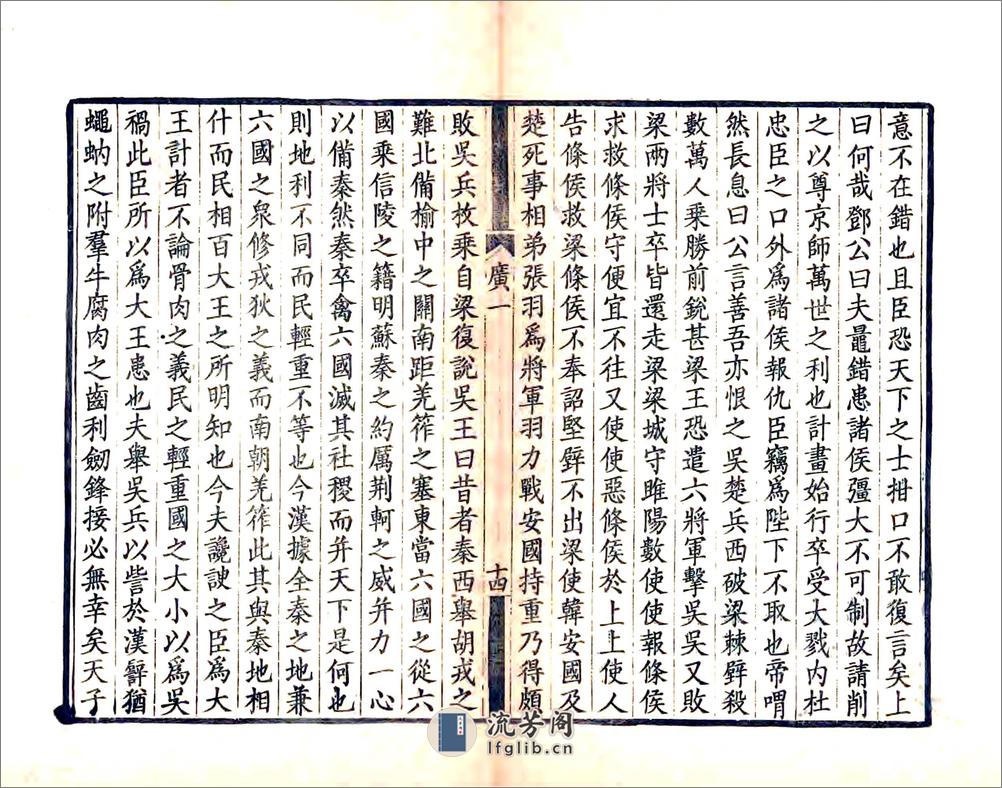 意不在錯也且臣恐天下之士拑口不敢復言矣上
曰何哉鄧公曰夫鼂錯患諸侯彊大不可制故請削
之以尊京師萬世之利也計畫始行卒受大戮内杜
忠臣之口外爲諸侯報仇臣竊爲陛下不取也帝喟
然長息曰公言善吾亦恨之吳楚兵西破梁棘壁殺
數萬人乗勝前銳甚梁王恐遣六將軍擊吳吳又敗
梁兩將士卒皆還走梁梁城守雎陽數使使報條侯
求救條侯守便宜不往又使使惡條侯於上上使人
告條侯救梁條侯不奉詔堅壁不出梁使韓安國及
楚死事相弟張羽爲將軍羽力戰安國持重乃得頗
廣一
十四
敗吳兵枚乘自梁復說吳王曰昔者秦西舉胡戎之
難北備榆中之關南距羌筰之塞東當六國之從六
國乘信陵之籍明蘇秦之約厲荆軻之威并力一心
以備秦然秦卒禽六國滅其社稷而并天下是何也
則地利不同而民輕重不等也今漢據全秦之地兼
六國之衆修戎狄之義而南朝羌筰此其與秦地相
什而民相百大王之所明知也今夫讒諛之臣爲大
王計者不論骨肉之義民之輕重國之大小以爲吳
禍此臣所以爲大王患也夫舉吳兵以訾於漢譬猶
蠅蚋之附羣牛腐肉之齒利劒鋒接必無幸矣天子
流芳阁
lfglib.cn